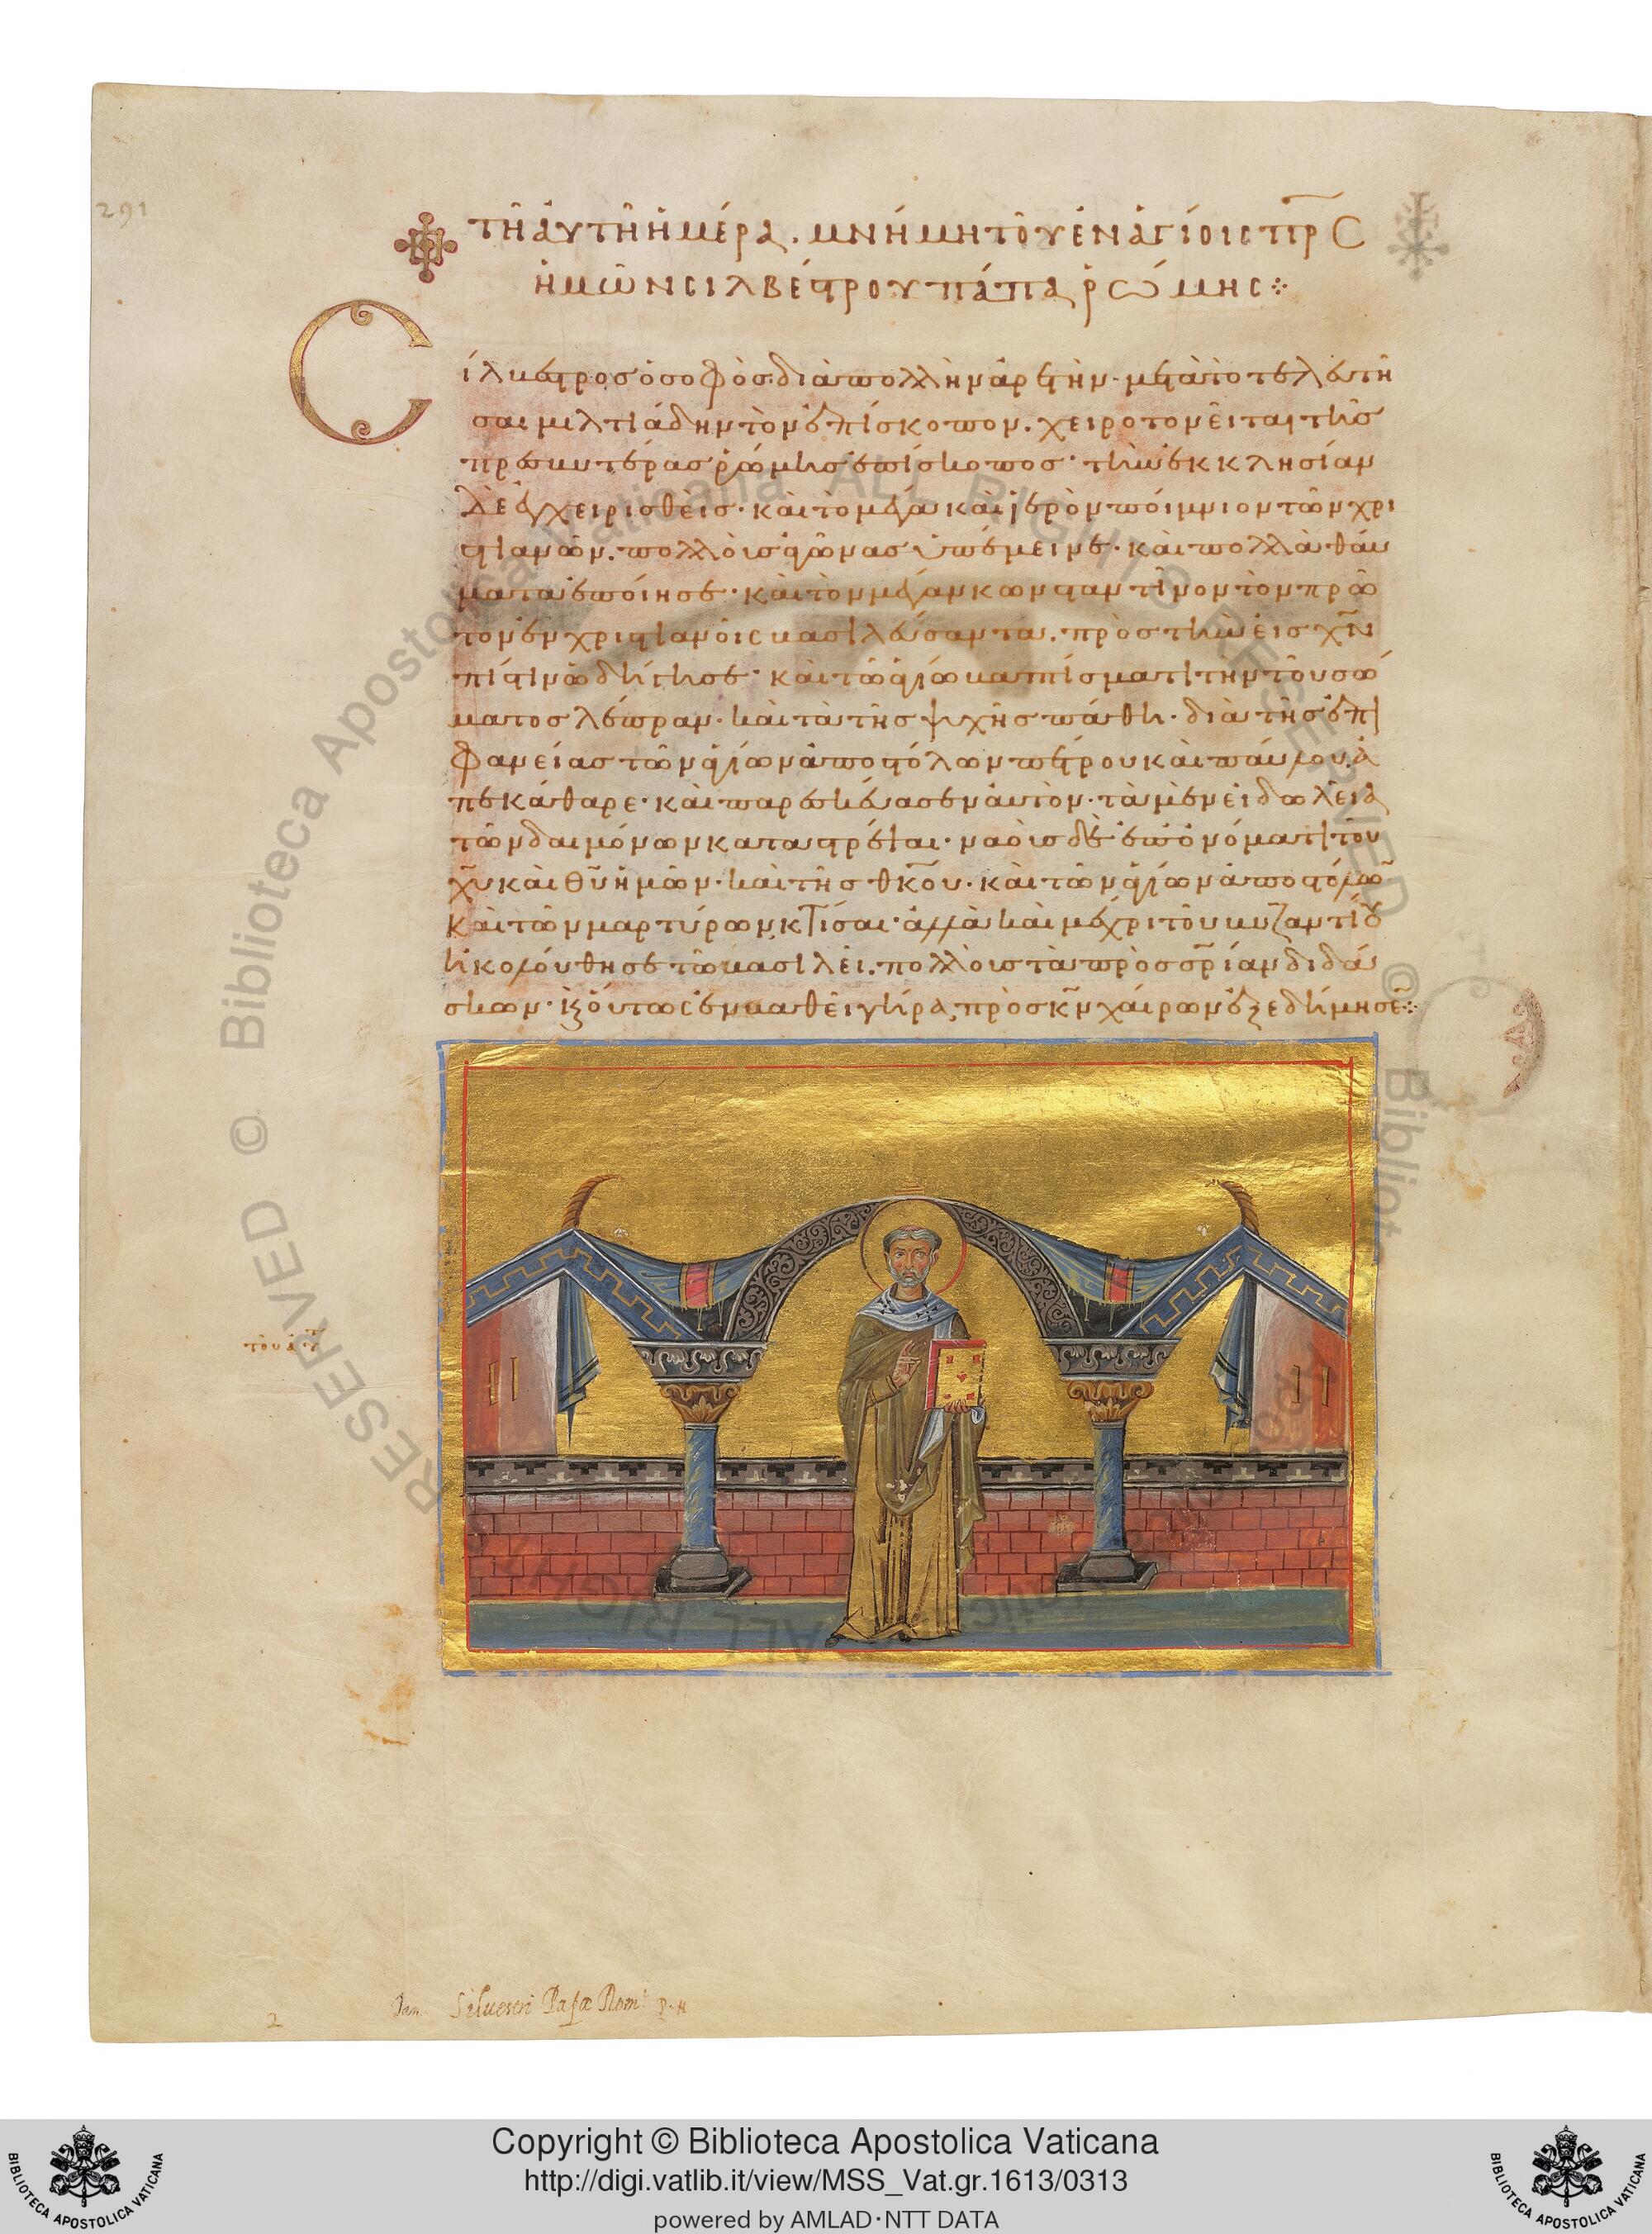 291
ΤΗ ΑΥΤΗ ΗΜΕΡΑ. ΜΝΗΜΗ ΤΟΥ ΕΝ ΑΓΙΟΙΣ ΠΡΣ
ΗΜΩΝ ΣΙΛΒΕΣΤΡΟΥ ΠΑΠΑ ΡΩΜΗΣ
Σίλβεστρος ὁ σοφὸς διὰ πολλὴν ἀρετὴν· μετὰ τὸ τελευτῆ
σαι μιλτιάδην τὸν ἐπίσκοπον. χειροτονεῖται τῆς
πρεσβυτέρας ῥώμης ἐπίσκοπος· τὴν ἐκκλησίαν
ἐγχειρισθεὶς· καὶ τὸ μέγα καὶ ἱερὸν ποίμνιον τῶν χρι
στιανῶν. πολλοὺς ἀγῶνας ὑπέμεινε· καὶ πολλὰ θαύ
ματα ἐποίησε· καὶ τὸν μέγαν κωνσταντῖνον τὸν πρῶ
τον ἐν χριστιανοῖς βασιλεύσαντα. πρὸς τὴν εἰς χν
πίστιν ὡδήγησε· καὶ τῶ ἁγίω βαπτίσματι τὴν τοῦ σώ
ματος λέπραν· καὶ τὰ τῆς ψυχῆς πάθη· διὰ τῆς ἐπι
φανείας τῶν ἁγίων ἀποστόλων πέτρου καὶ παύλου. ἀ
πεκάθαρε· καὶ παρεσκεύασεν αὐτὸν· τὰ μὲν εἰδωλεῖα
τῶν δαιμόνων καταστρέψαι· ναοὺς δὲ ἐπ ὀνόματι τοῦ
χυ καὶ θυ ἡμῶν· καὶ τῆς θκου· καὶ τῶν ἁγίων ἀποστόλω
καὶ τῶν μαρτύρων κτίσαι· ἀλλὰ καὶ μέχρι τοῦ βυζαντίου
ἠκολούθησε τῶ βασιλεῖ. πολλοὺς τὰ πρὸς σριαν διδά
σκων· καὶ οὕτως ἐν βαθεῖ γήρα, πρὸς κν χαίρων ἐξεδήμησε
2 Jan. Silvestri Papæ Rom.
Copyright © Biblioteca Apostolica Vaticana
http://digi.vatlib.it/view/MSS_Vat.gr.1613/0313
powered by AMLAD・NTT DATA
BIBLIOTECA APOSTOLICA VATICANA
BIBLIOTECA APOSTOLICA VATICANA
© Biblioteca Apostolica Vaticana ALL RIGHTS RESERVED